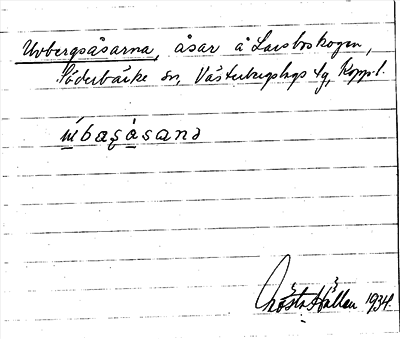 Uvbergsåsarna, åsar å Larsboskogen,
Söderbärke sn, Västerbergslags tg, Kopp. l.
ùbaşåsand
Gösta Hållen 1934.